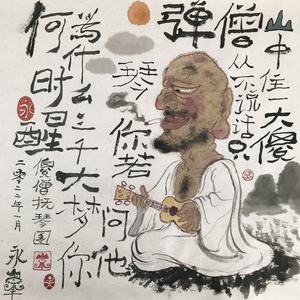 山中住一大傻
僧从不说话只
弹
琴你若
问他
為什么三千大梦你
何时醒
傻僧抚琴图
二〇二二年一月
永